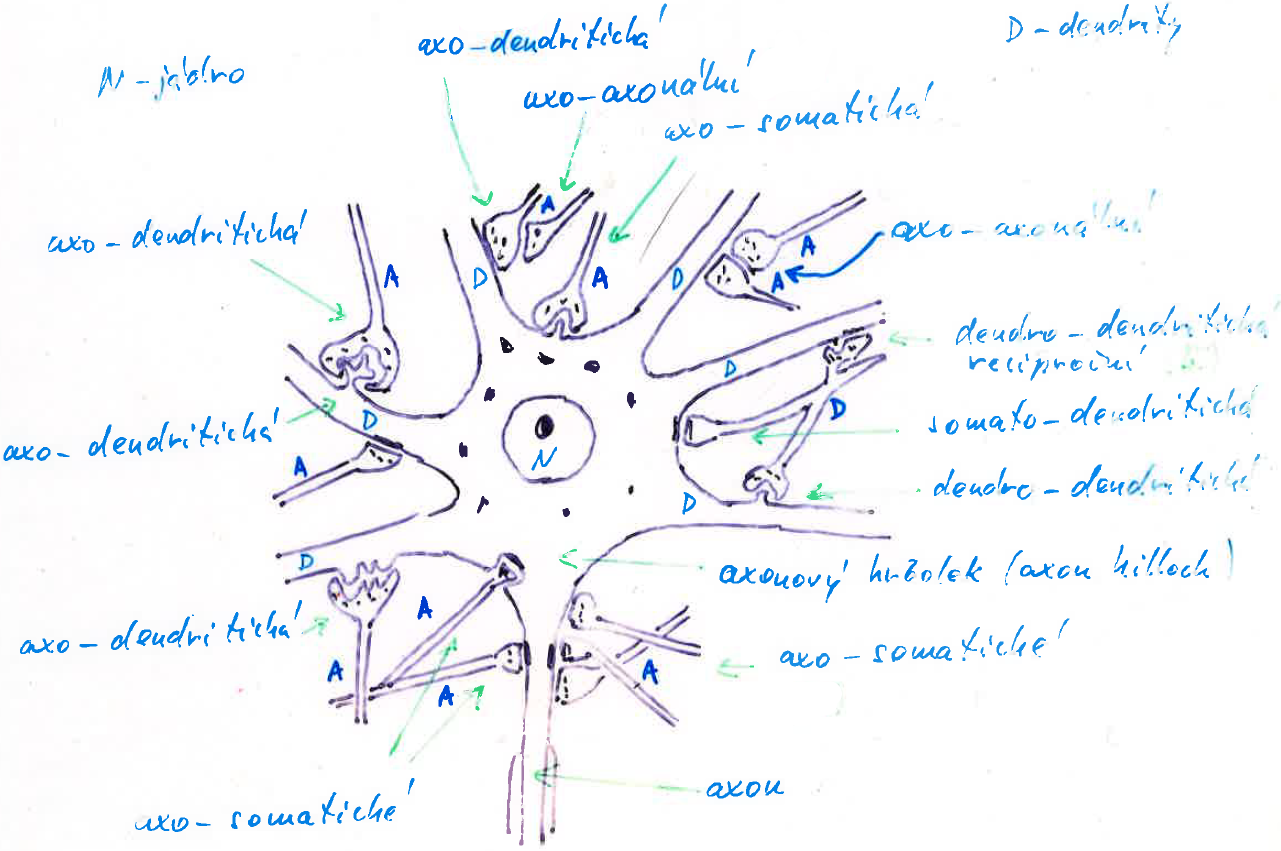 axo-dendritická
D - dendrity
N - jádro
axo-axonální
axo-somatická
axo-dendritická
A
A
A
D
D
A
A
axo-axonální
dendro-dendritická
reciproční
D
D
somato-dendritická
D
axo-dendritická
A
N
dendro-dendritická
D
D
axonový hrbolek (axon hillock)
A
axo-dendritická
A
A
A
axo-somatické
axon
axo-somatické